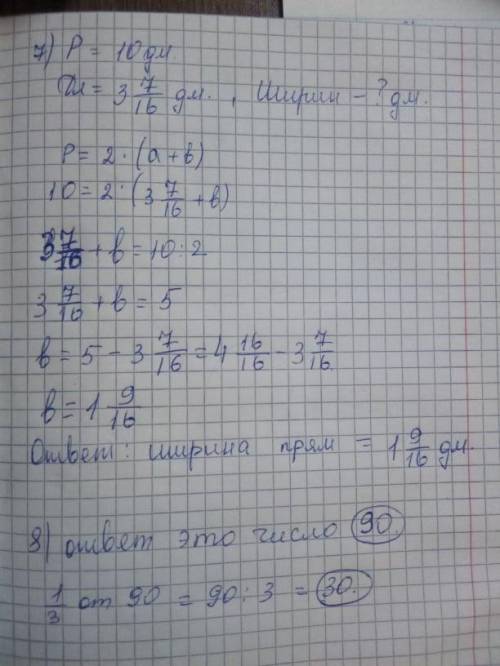 7) P = 10 дм.
Дл = 3 7/16 дм. , Ширин - ? дм.
P = 2 · (a + b)
10 = 2 · (3 7/16 + b)
3 7/16 + b = 10 : 2
3 7/16 + b = 5
b = 5 - 3 7/16 = 4 16/16 - 3 7/16
b = 1 9/16
Ответ: ширина прям = 1 9/16 дм.
8) ответ это число 90.
1/3 от 90 = 90 : 3 = 30.